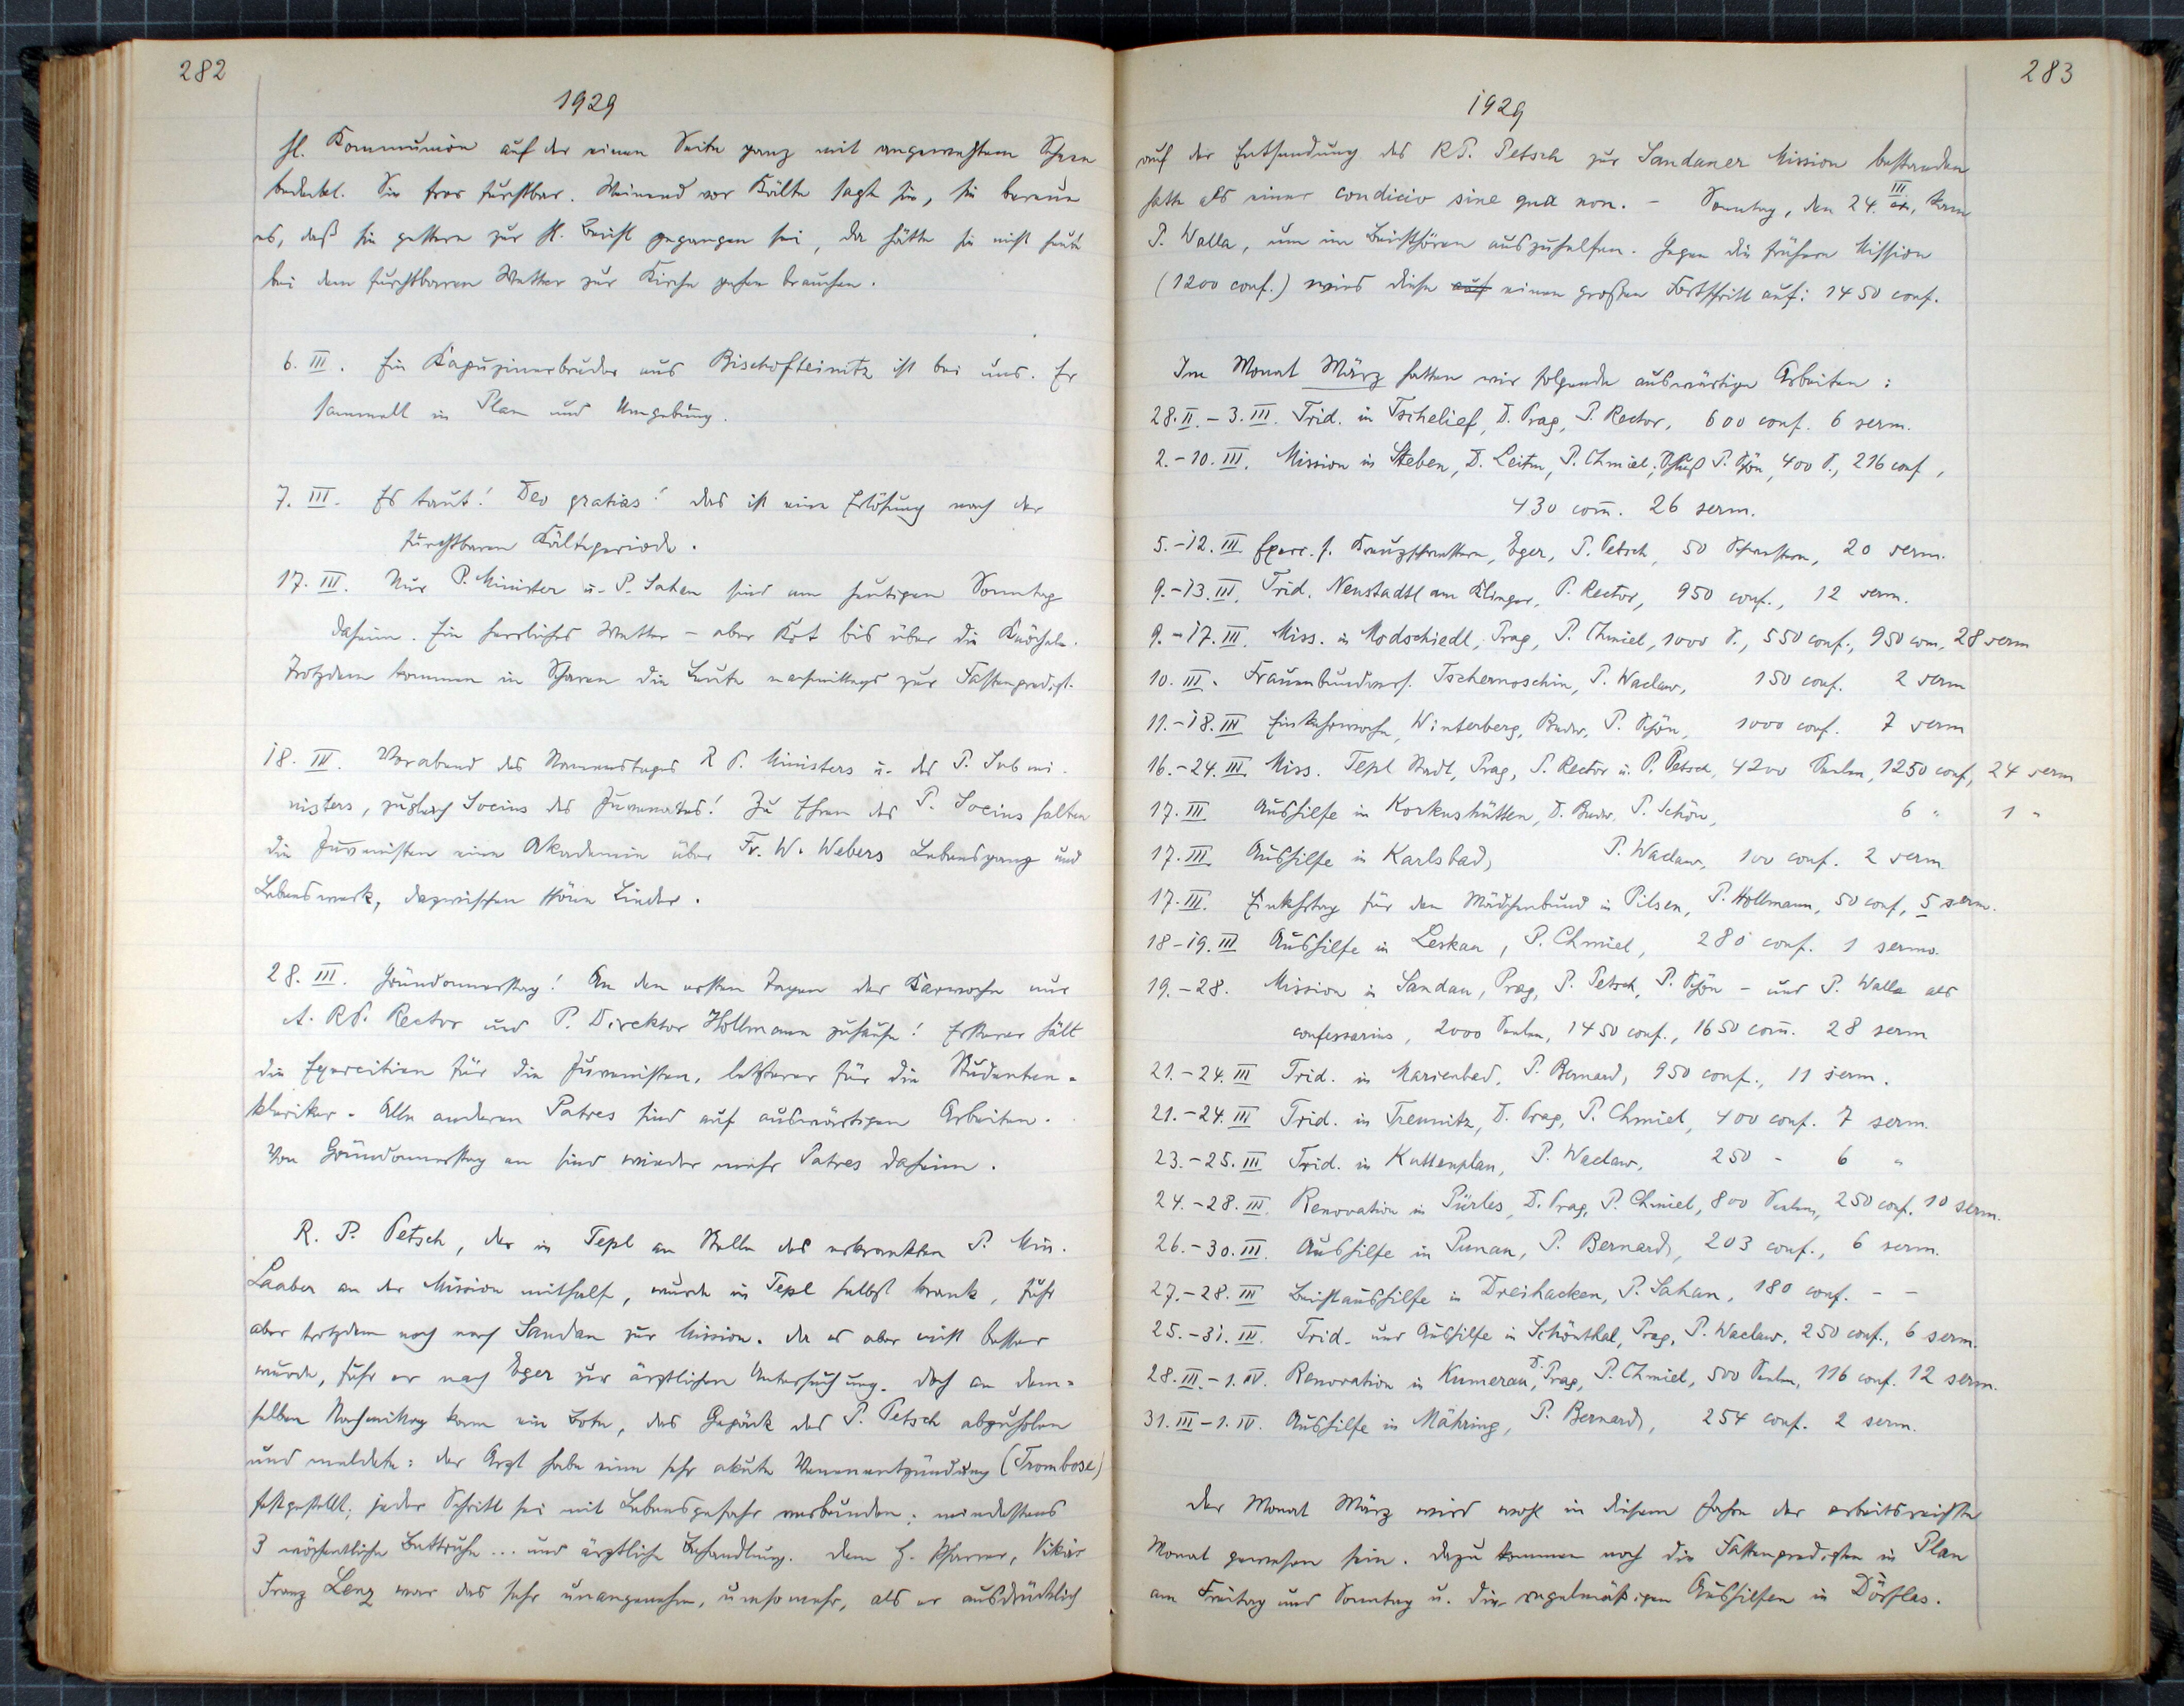 282
1929
hl. Kommunion auf der einen Seite ganz mit angewehtem Schnee
bedeckt. Sie fror furchtbar. Weinend vor Kälte sagte sie, sie bereue
es, daß sie gestern zur hl. Beicht gegangen sei, da hätte sie nicht heute
bei dem furchtbaren Wetter zur Kirche gehen brauchen.
6. III. Ein Kapuzinerbruder aus Bischofteinitz ist bei uns. Er
sammelt in Plan und Umgebung.
7. III. Es taut! Deo gratias! Das ist eine Erlösung nach der
furchtbaren Kälteperiode.
17. III. Nur P. Minister u. P. Sahan sind am heutigen Sonntag
daheim. Ein herrliches Wetter – aber Kot bis über die Knöcheln.
Trotzdem kommen in Scharen die Leute nachmittags zur Fastenpredigt.
18. III. Vorabend des Namenstages R. P. Ministers u. des P. Submi-
nisters, zugleich Socius des Juvenates! Zu Ehren des P. Socius halten
die Juvenisten eine Akademie über Fr. W. Webers Lebensgang und
Lebenswerk, dazwischen schöne Lieder.
28. III. Gründonnerstag! In den ersten Tagen der Karwoche nur
A. R. P. Rector und P. Direktor Hollmann zuhause! Ersterer hält
die Exercitien für die Juvenisten, letzterer für die Studenten-
kleriker. Alle anderen Patres sind auf auswärtigen Arbeiten.
Von Gründonnerstag an sind wieder mehr Patres daheim.
R. P. Petsch, der in Tepl an Stelle des erkrankten P. Min.
Laaber an der Mission mithalf, wurde in Tepl selbst krank, fuhr
aber trotzdem noch nach Sandau zur Mission. Da es aber nicht besser
wurde, fuhr er nach Eger zur ärztlichen Untersuchung. Doch an dem-
selben Nachmittag kam ein Bote, das Gepäck des P. Petsch abzuholen
und meldete: der Arzt habe eine sehr akute Venenentzündung (Trombose)
festgestellt; jeder Schritt sei mit Lebensgefahr verbunden; mindestens
3 wöchentliche Bettruhe ... und ärztliche Behandlung. Dem H. Pfarrer, Vikär
Franz Lenz war das sehr unangenehm, umsomehr, als er ausdrücklich
283
1929
auf der Entsendung des R. P. Petsch zur Sandauer Mission bestanden
hatte als einer condicio sine qua non. – Sonntag, den 24. III, kam
P. Walla, um im Beichthören auszuhelfen. Gegen die frühere Mission
(1200 conf.) wies diese auf einen großen Fortschritt auf: 1450 conf.
Im Monat März hatten wir folgende auswärtigen Arbeiten:
28. II. – 3. III. Trid. in Tschelief, D. Prag, P. Rector, 600 conf. 6 serm.
2. – 10. III. Mission in Steben, D. Leitm, P. Chmiel, P. Schön, 400 S., 216 conf,
430 com̄. 26 serm.
5. – 12. III. Exerc. f. Kreuzschwestern, Eger, P. Petsch, 50 Schwestern, 20 serm.
9. – 13. III. Trid. Neustadtl am Klinger, P. Rector, 950 conf., 12 serm.
9. – 17. III. Miss. in Modschiedl, Prag, P. Chmiel, 1000 S., 550 conf., 950 com, 28 serm
10. III. Frauenbundvers. Tschernoschin, P. Waclaw, 150 conf. 2 serm
11. – 18. III Einkehrwoche, Winterberg, Budw, P. Schön, 1000 conf. 7 serm
16. – 24. III Miss. Tepl Stadt, Prag, P. Rector u. P. Petsch, 4200 Seelen, 1250 conf, 24 serm
17. III Aushilfe in Korkushütten, D. Budw, P. Schön, 6 " 1 "
17. III Aushilfe in Karlsbad, P. Waclaw, 100 conf. 2 serm
17. III. Einkehrtag für den Mädchenbund in Pilsen, P. Hollmann, 50 conf, 5 serm.
18 – 19. III Aushilfe in Leskau, P. Chmiel, 280 conf. 1 sermo.
19. – 28. Mission in Sandau, Prag, P. Petsch, P. Schön – und P. Walla als
confessarius, 2000 Seelen, 1450 conf., 1650 com̄. 28 serm
21. – 24. III Trid. in Marienbad, P. Bernard, 950 conf., 11 serm.
21. – 24. III Trid. in Tremnitz, D. Prag, P. Chmiel, 400 conf. 7 serm.
23. – 25. III Trid. in Kuttenplan, P. Waclaw, 250 – 6 "
24. – 28. III. Renovation in Pürles, D. Prag, P. Chmiel, 800 Seelen, 250 conf. 10 serm.
26. – 30. III. Aushilfe in Punau, P. Bernard, 203 conf., 6 serm.
27. – 28. III Beichtaushilfe in Dreihacken, P. Sahan, 180 conf. – –
25. – 31. III. Trid. und Aushilfe in Schönthal, Prag, P. Waclaw, 250 conf., 6 serm.
28. III. – 1. IV. Renovation in Kumerau, D. Prag, P. Chmiel, 500 Seelen, 116 conf. 12 serm.
31. III – 1. IV. Aushilfe in Mähring, P. Bernard, 254 conf. 2 serm.
Der Monat März wird wohl in diesem Jahre der arbeitsreichste
Monat gewesen sein. Dazu kommen noch die Fastenpredigten in Plan
am Freitag und Sonntag u. die regelmäßigen Aushilfen in Dörflas.